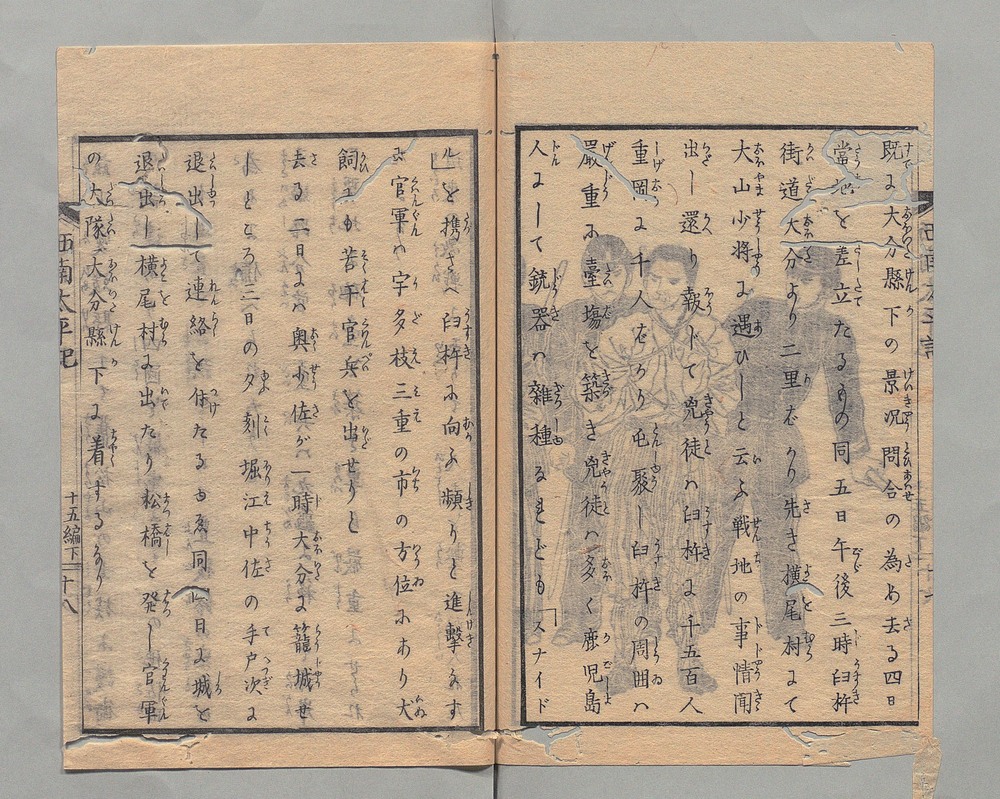 既に大分縣下の景况問合の為め去る四日
當地を差立たるもの同五日午後三時臼杵
街道大分より二里ばかり先き横尾村まて
大山少将に遇ひしと云ふ戦地の事情聞
出し還り報じて兇徒ハ臼杵に千五百人
重岡に千人ばかり屯聚し臼杵の周囲ハ
嚴重に臺塲を築き兇徒ハ多く鹿児島
人にして銃器ハ雑種なれども「スナイド
ル」を携さへ臼杵に向ふ頻りと進撃をす
官軍ハ宇多枝三重の市の方位にあり犬
飼も若干官兵を出せりと
去る二日にハ奥少佐が一時大分に籠城せ
しところ三日の夕刻堀江中佐の手戸次に
退出して連絡を付たる由同日に城を
退出し横尾村に出たり松橋を発し官軍
の大隊大分縣下に着するなり
西南太平記
十五編下
十八
西南太平記